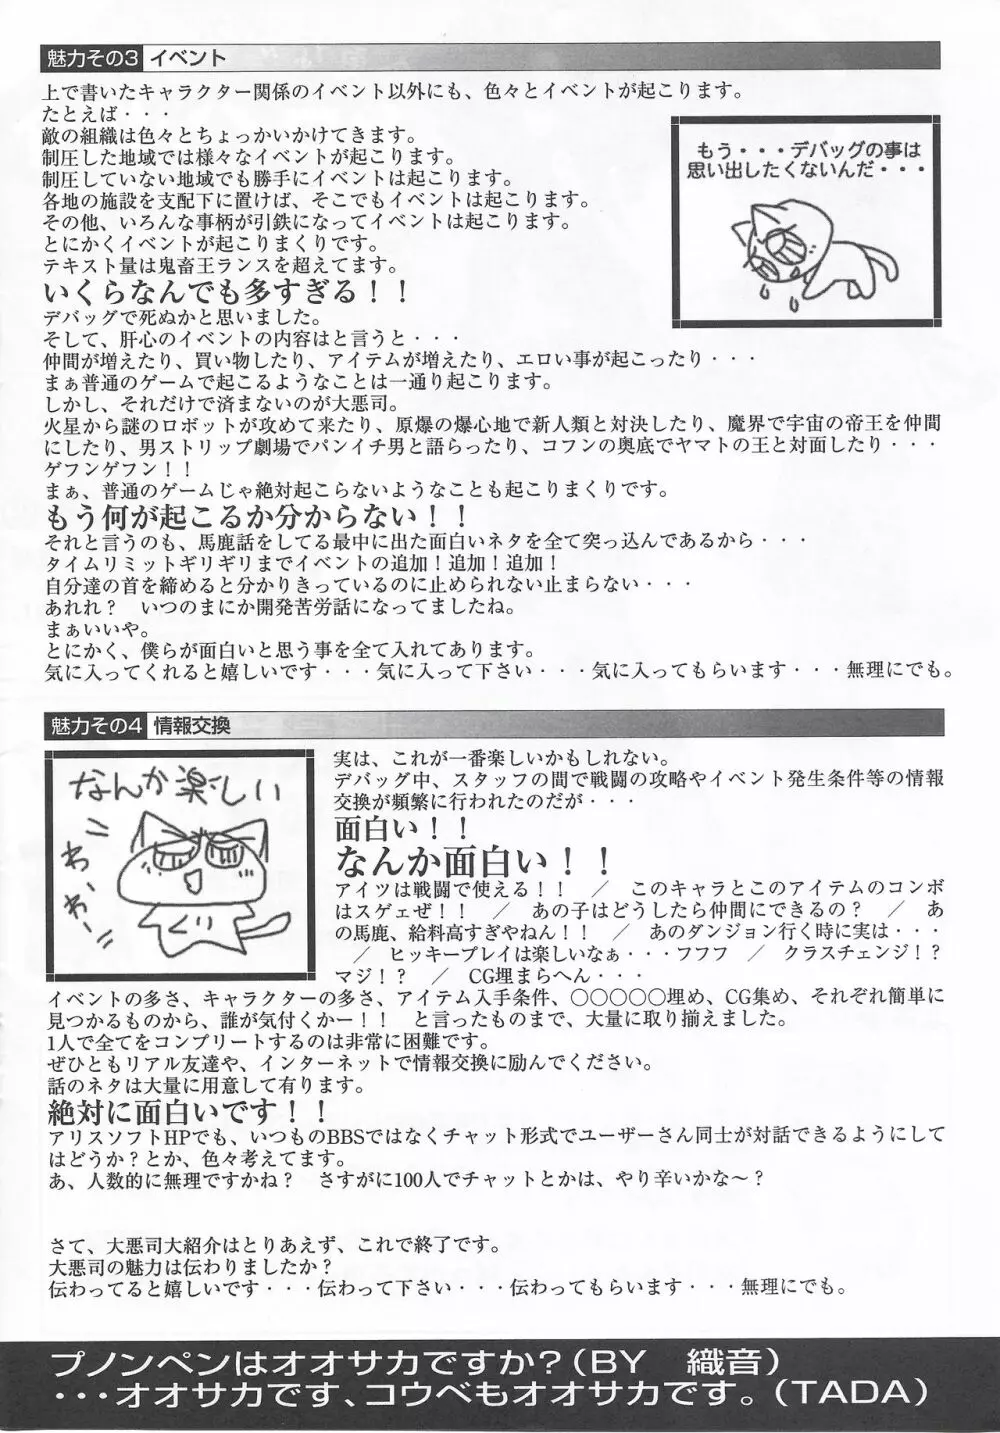 魅力その3 イベント
上で書いたキャラクター関係のイベント以外にも、色々とイベントが起こります。
たとえば・・・
敵の組織は色々とちょっかいかけてきます。
制圧した地域では様々なイベントが起こります。
制圧していない地域でも勝手にイベントは起こります。
各地の施設を支配下に置けば、そこでもイベントは起こります。
その他、いろんな事柄が引鉄になってイベントは起こります。
とにかくイベントが起こりまくりです。
テキスト量は鬼畜王ランスを超えてます。
いくらなんでも多すぎる！！
デバッグで死ぬかと思いました。
そして、肝心のイベントの内容はと言うと・・・
仲間が増えたり、買い物したり、アイテムが増えたり、エロい事が起こったり・・・
まぁ普通のゲームで起こるようなことは一通り起こります。
しかし、それだけで済まないのが大悪司。
火星から謎のロボットが攻めて来たり、原爆の爆心地で新人類と対決したり、魔界で宇宙の帝王を仲間
にしたり、男ストリップ劇場でパンイチ男と語らったり、コフンの奥底でヤマトの王と対面したり・・・
ゲフンゲフン！！
まぁ、普通のゲームじゃ絶対起こらないようなことも起こりまくりです。
もう何が起こるか分からない！！
それと言うのも、馬鹿話をしてる最中に出た面白いネタを全て突っ込んであるから・・・
タイムリミットギリギリまでイベントの追加！追加！追加！
自分達の首を締めると分かりきっているのに止められない止まらない・・・
あれれ？　いつのまにか開発苦労話になってましたね。
まぁいいや。
とにかく、僕らが面白いと思う事を全て入れてあります。
気に入ってくれると嬉しいです・・・気に入って下さい・・・気に入ってもらいます・・・無理にでも。
もう・・・デバッグの事は
思い出したくないんだ・・・
魅力その4 情報交換
なんか楽しい
わ、わー
実は、これが一番楽しいかもしれない。
デバッグ中、スタッフの間で戦闘の攻略やイベント発生条件等の情報
交換が頻繁に行われたのだが・・・
面白い！！
なんか面白い！！
アイツは戦闘で使える！！　／　このキャラとこのアイテムのコンボ
はスゲェぜ！！　／　あの子はどうしたら仲間にできるの？　／　あ
の馬鹿、給料高すぎやねん！！　／　あのダンジョン行く時に実は・・・
／　ヒッキープレイは楽しいなぁ・・・フフフ　／　クラスチェンジ！？
マジ！？　／　CG埋まらへん・・・
イベントの多さ、キャラクターの多さ、アイテム入手条件、○○○○○埋め、CG集め、それぞれ簡単に
見つかるものから、誰が気付くかー！！　と言ったものまで、大量に取り揃えました。
1人で全てをコンプリートするのは非常に困難です。
ぜひともリアル友達や、インターネットで情報交換に励んでください。
話のネタは大量に用意して有ります。
絶対に面白いです！！
アリスソフトHPでも、いつものBBSではなくチャット形式でユーザーさん同士が対話できるようにして
はどうか？とか、色々考えてます。
あ、人数的に無理ですかね？　さすがに100人でチャットとかは、やり辛いかな～？
さて、大悪司大紹介はとりあえず、これで終了です。
大悪司の魅力は伝わりましたか？
伝わってると嬉しいです・・・伝わって下さい・・・伝わってもらいます・・・無理にでも。
プノンペンはオオサカですか？（BY　織音）
・・・オオサカです、コウベもオオサカです。（TADA）